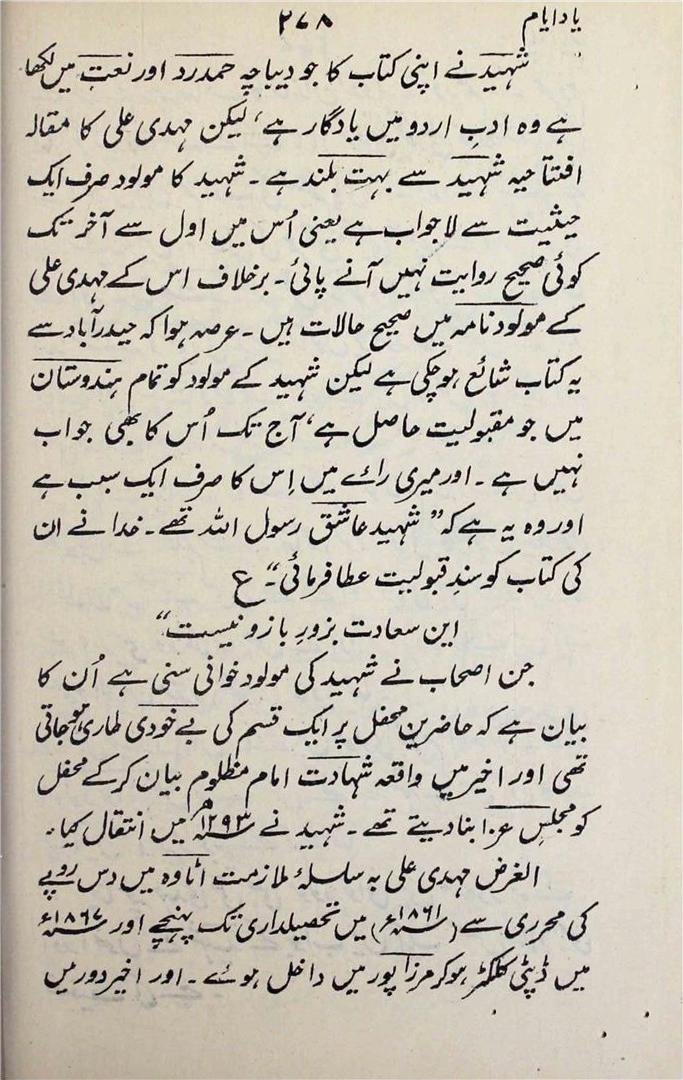 یاد ایام ۲۷۸
شہید نے اپنی کتاب کا جو دیباچہ حمد رد اور نعت میں لکھا
ہے وہ ادبِ اردو میں یادگار ہے، لیکن مہدی علی کا مقالہ
افتتاحیہ شہید سے بہت بلند ہے۔ شہید کا مولود صرف ایک
حیثیت سے لاجواب ہے یعنی اُس میں اول سے آخر تک
کوئی صحیح روایت نہیں آنے پائی۔ برخلاف اس کے مہدی علی
کے مولود نامہ میں صحیح حالات ہیں۔ عرصہ ہوا کہ حیدرآباد سے
یہ کتاب شائع ہو چکی ہے لیکن شہید کے مولود کو تمام ہندوستان
میں جو مقبولیت حاصل ہے، آج تک اُس کا بھی جواب
نہیں ہے۔ اور میری رائے میں اِس کا صرف ایک سبب ہے
اور وہ یہ ہے کہ ”شہید عاشقِ رسول اللہ تھے۔ خدا نے ان
کی کتاب کو سندِ قبولیت عطا فرمائی۔“ ع
این سعادت بزورِ بازو نیست“
جن اصحاب نے شہید کی مولود خوانی سنی ہے اُن کا
بیان ہے کہ حاضرینِ محفل پر ایک قسم کی بے خودی طاری ہو جاتی
تھی اور اخیر میں واقعہ شہادت امام مظلوم بیان کر کے محفل
کو مجلسِ عزا بنا دیتے تھے۔ شہید نے ۱۲۹۳ھ میں انتقال کیا۔
الغرض مہدی علی بہ سلسلۂ ملازمت اٹاوہ میں دس روپے
کی محرری سے (۱۸۶۱ء) میں تحصیلداری تک پہنچے اور ۱۸۶۷ء
میں ڈپٹی کلکٹر ہو کر مرزا پور میں داخل ہوئے۔ اور اخیر دور میں